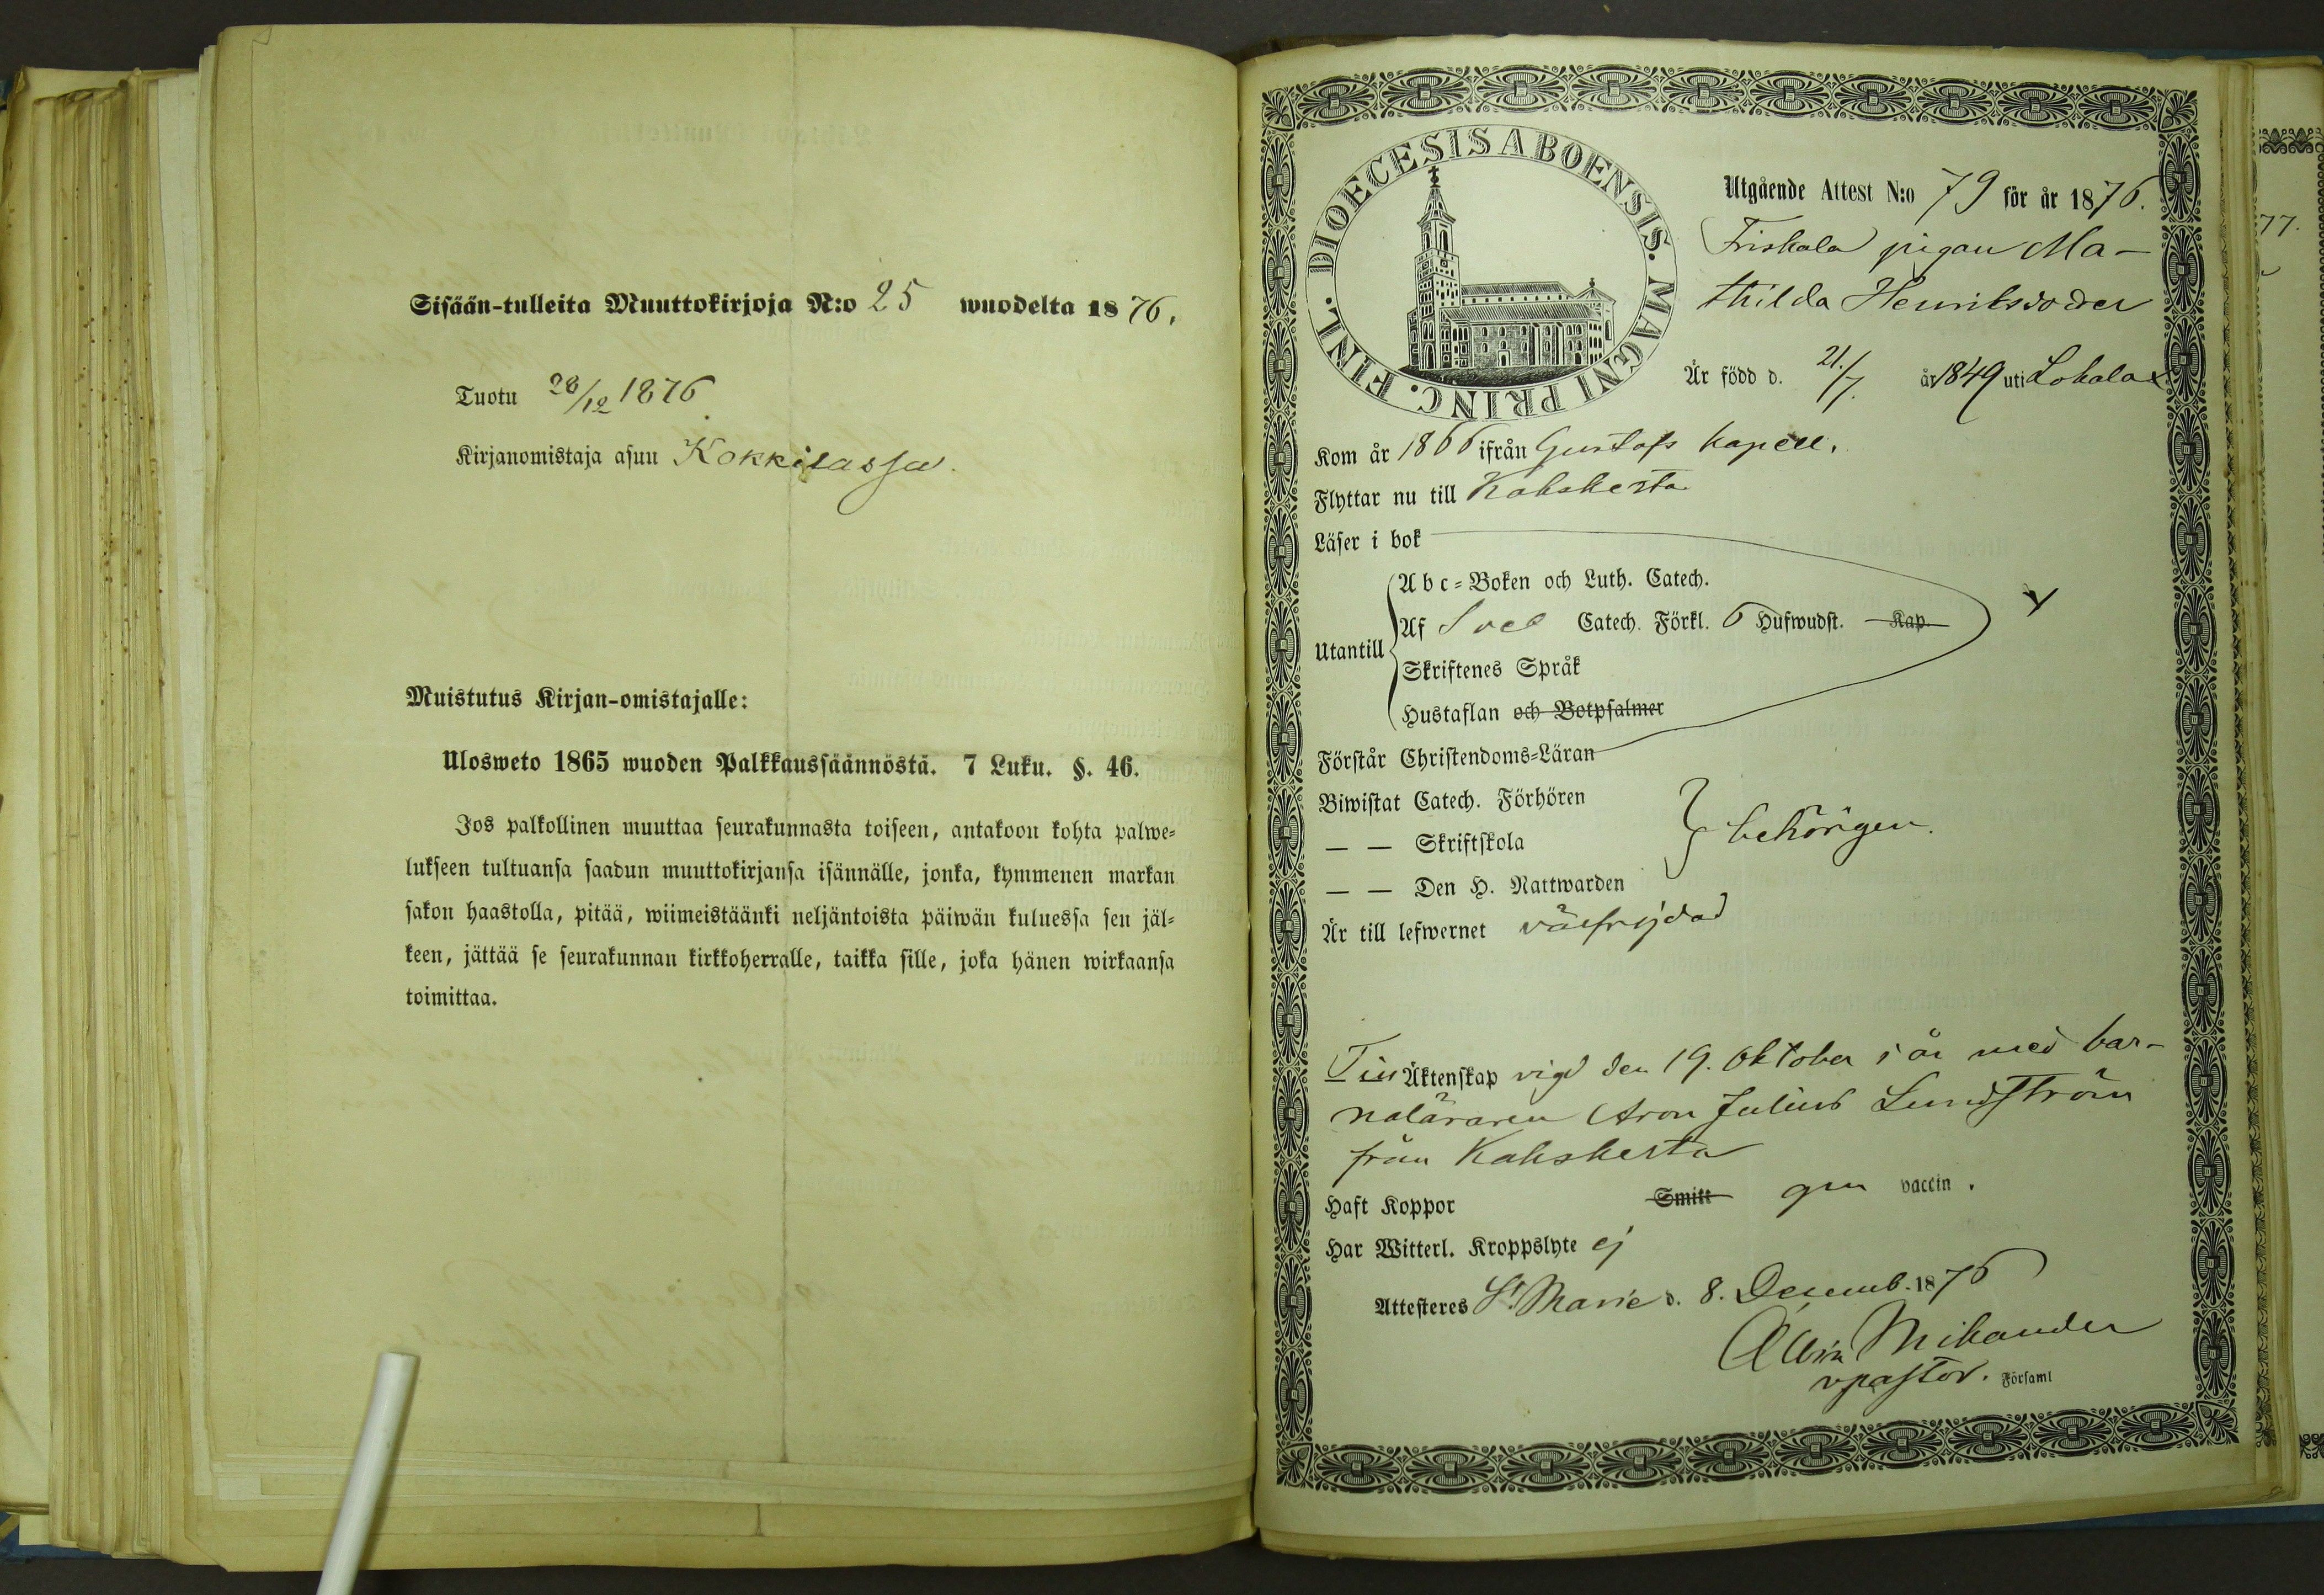 Sisään-tulleita Muuttokirjoja N:o 25 wuodelta 1876.
Tuotu 28/12 1876
Kirjanomistaja asuu Kokkilassa.
Muistutus Kirjan-omistajalle:
Ulosweto 1865 wuoden Palkkaussäännöstä. 7 Luku. §. 46.
Jos palkollinen muuttaa seurakunnasta toiseen, antakoon kohta palwe-
lukseen tultuansa saadun muuttokirjansa isännälle, jonka, kymmenen markan
sakon haastolla, pitää, wiimeistäänki neljäntoista päiwän kuluessa sen jäl-
keen, jättää se seurakunnan kirkkoherralle, taikka sille, joka hänen wirkaansa
toimittaa.
DIOECESIS ABOENSIS. MAGNI PRINC. FINL.
Utgående Attest N:o 79 för år 1876.
Friskala pigan Ma-
thilda Henriksdoder
Är född d. 21./7. år 1849 uti Lokalax
Kom år 1866 ifrån Gustafs kapell.
Flyttar nu till Kakskerta
Läser i bok
Utantill
Abc-Boken och Luth. Catech.
Af Sveb Catech. Förkl. 6 Hufwudst. Kap.
Skriftenes Språk
Hustaflan och Botpsalmer
Förstår Christendoms-Läran
Biwistat Catech. Förhören
— — Skriftskola
behörigen.
— — Den H. Nattwarden
Är till lefwernet välfrejdad
Till Äktenskap vigd den 19. Oktober i år med bar-
naläraren Aron Julius Lundström
från Kakskerta
Haft Koppor Smitt gm vaccin.
Har Witterl. Kroppslyte ej
Attesteres St. Marie d. 8. Decemb. 1876
Albin Mikander
vpastor. Församl
77.